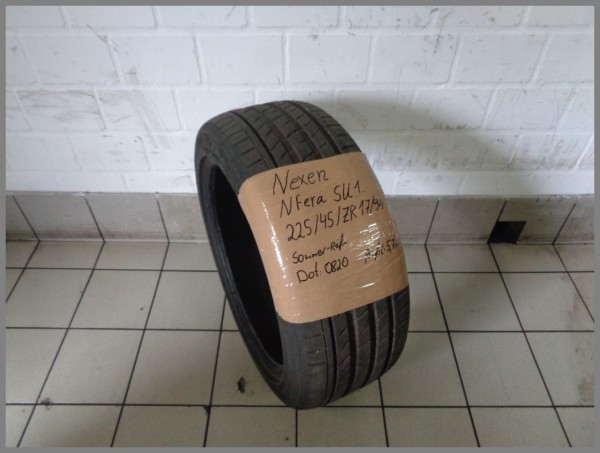 Nexen
NFera SU1.
225/45/ZR17/94
Sommer-Reif
Dot: 0820